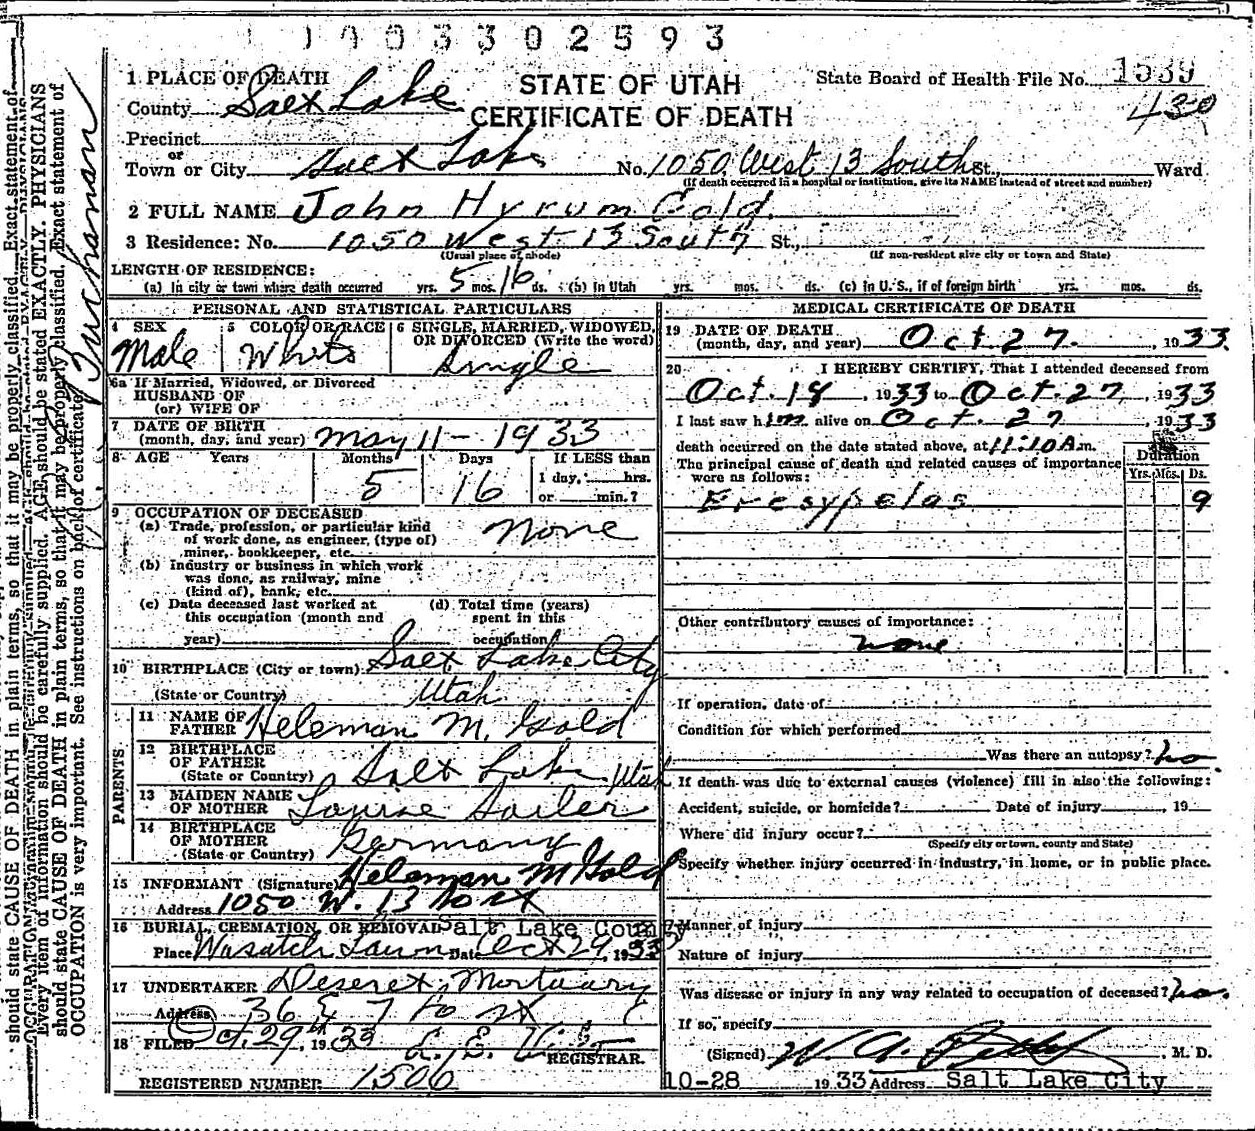 1003302593
1 PLACE OF DEATH
STATE OF UTAH
CERTIFICATE OF DEATH
State Board of Health File No. 1539
430
County Salt Lake
Precinct
or
Town or City Salt Lake No. 1050 West 13 South St., Ward
(If death occurred in a hospital or institution, give its NAME instead of street and number)
2 FULL NAME John Hyrum Gold
3 Residence: No. 1050 West 13 South St.,
(Usual place of abode) (If non-resident give city or town and State)
LENGTH OF RESIDENCE:
(a) In city or town where death occurred yrs. 5 mos. 16 ds. (b) in Utah yrs. mos. ds. (c) in U. S., if of foreign birth yrs. mos. ds.
PERSONAL AND STATISTICAL PARTICULARS
4 SEX Male
5 COLOR OR RACE White
6 SINGLE, MARRIED, WIDOWED, OR DIVORCED (Write the word) Single
6a If Married, Widowed, or Divorced
HUSBAND OF
(or) WIFE OF
7 DATE OF BIRTH
(month, day, and year) May 11 - 1933
8 AGE Years Months Days If LESS than
1 day, hrs.
or min.?
5 16
9 OCCUPATION OF DECEASED
(a) Trade, profession, or particular kind
of work done, as engineer, (type of)
miner, bookkeeper, etc. None
(b) Industry or business in which work
was done, as railway, mine
(kind of), bank, etc.
(c) Date deceased last worked at
this occupation (month and
year)
(d) Total time (years)
spent in this
occupation
10 BIRTHPLACE (City or town) Salt Lake City
(State or Country) Utah
PARENTS
11 NAME OF
FATHER Heleman M. Gold
12 BIRTHPLACE
OF FATHER
(State or Country) Salt Lake Utah
13 MAIDEN NAME
OF MOTHER Louise Sailer
14 BIRTHPLACE
OF MOTHER
(State or Country) Germany
15 INFORMANT (Signature) Heleman M Gold
Address 1050 W. 13 So st
16 BURIAL, CREMATION, OR REMOVAL Salt Lake County
Place Wasatch Lawn Date Oct 29, 1933
17 UNDERTAKER Deseret Mortuary
Address 36 E 7 So st
18 FILED Oct. 29, 1933
REGISTRAR.
REGISTERED NUMBER 1506
MEDICAL CERTIFICATE OF DEATH
19 DATE OF DEATH
(month, day, and year) Oct 27. , 1933.
20 I HEREBY CERTIFY, That I attended deceased from
Oct. 18, 1933 to Oct. 27, 1933
I last saw him alive on Oct. 27 1933
death occurred on the date stated above, at 11:10 A.m.
The principal cause of death and related causes of importance
were as follows:
Duration
Yrs. Mos. Ds.
Eresypelas 9
Other contributory causes of importance:
none
If operation, date of
Condition for which performed
Was there an autopsy? no
If death was due to external causes (violence) fill in also the following:
Accident, suicide, or homicide? Date of injury , 19
Where did injury occur?
(Specify city or town, county and State)
Specify whether injury occurred in industry, in home, or in public place.
Manner of injury
Nature of injury
Was disease or injury in any way related to occupation of deceased? no.
If so, specify
(Signed) M. D.
10-28 1933 Address Salt Lake City
Every item of information should be carefully supplied. AGE should be stated EXACTLY. PHYSICIANS
should state CAUSE OF DEATH in plain terms, so that it may be properly classified. Exact statement of
OCCUPATION is very important. See instructions on back of certificate.
Buchanan